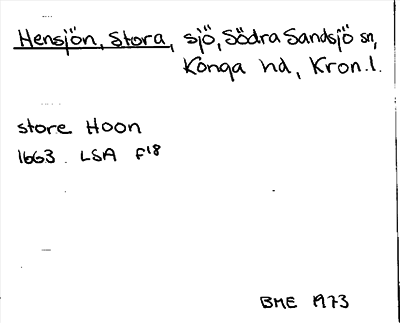 Hensjön, Stora, sjö, Södra Sandsjö sn,
Konga hd, Kron.l.
store Hoon
1663 LSA F18
BME 1973